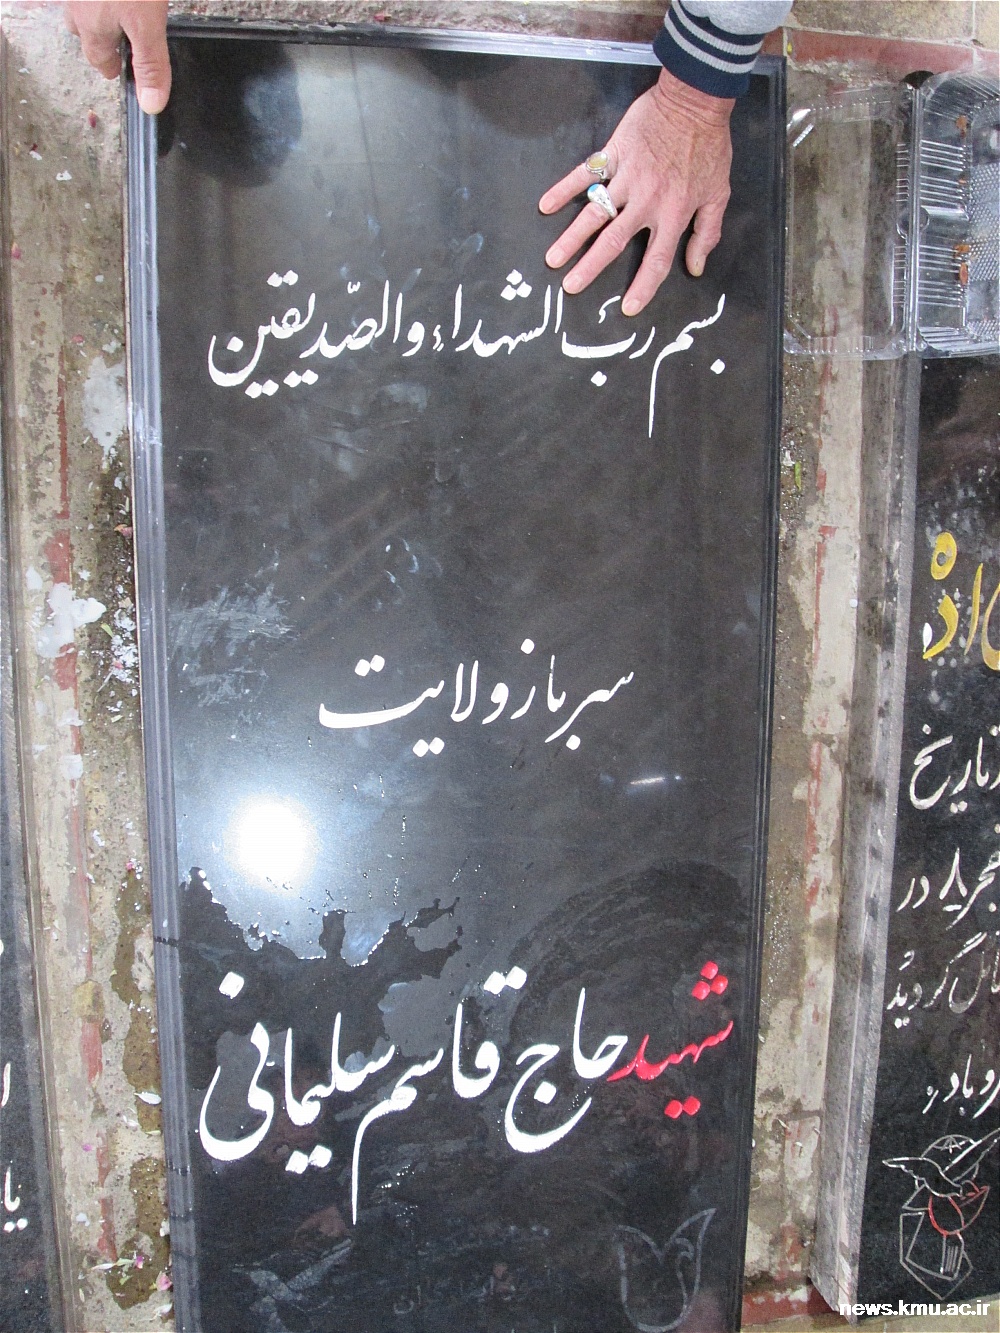 بسم ربّ الشهداء والصّدیقین
سرباز ولایت
شهید حاج قاسم سلیمانی
تاریخ
در
گردید
news.kmu.ac.ir